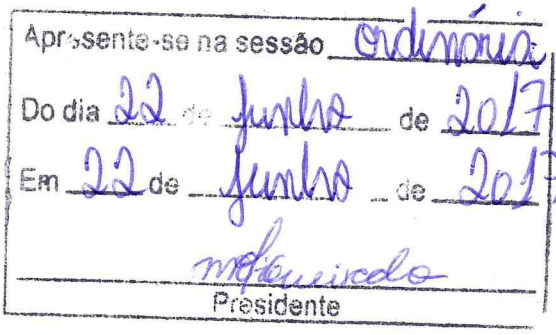 Apresente-se na sessão ordinária
Do dia 22 de junho de 2017
Em 22 de junho de 2017
Presidente